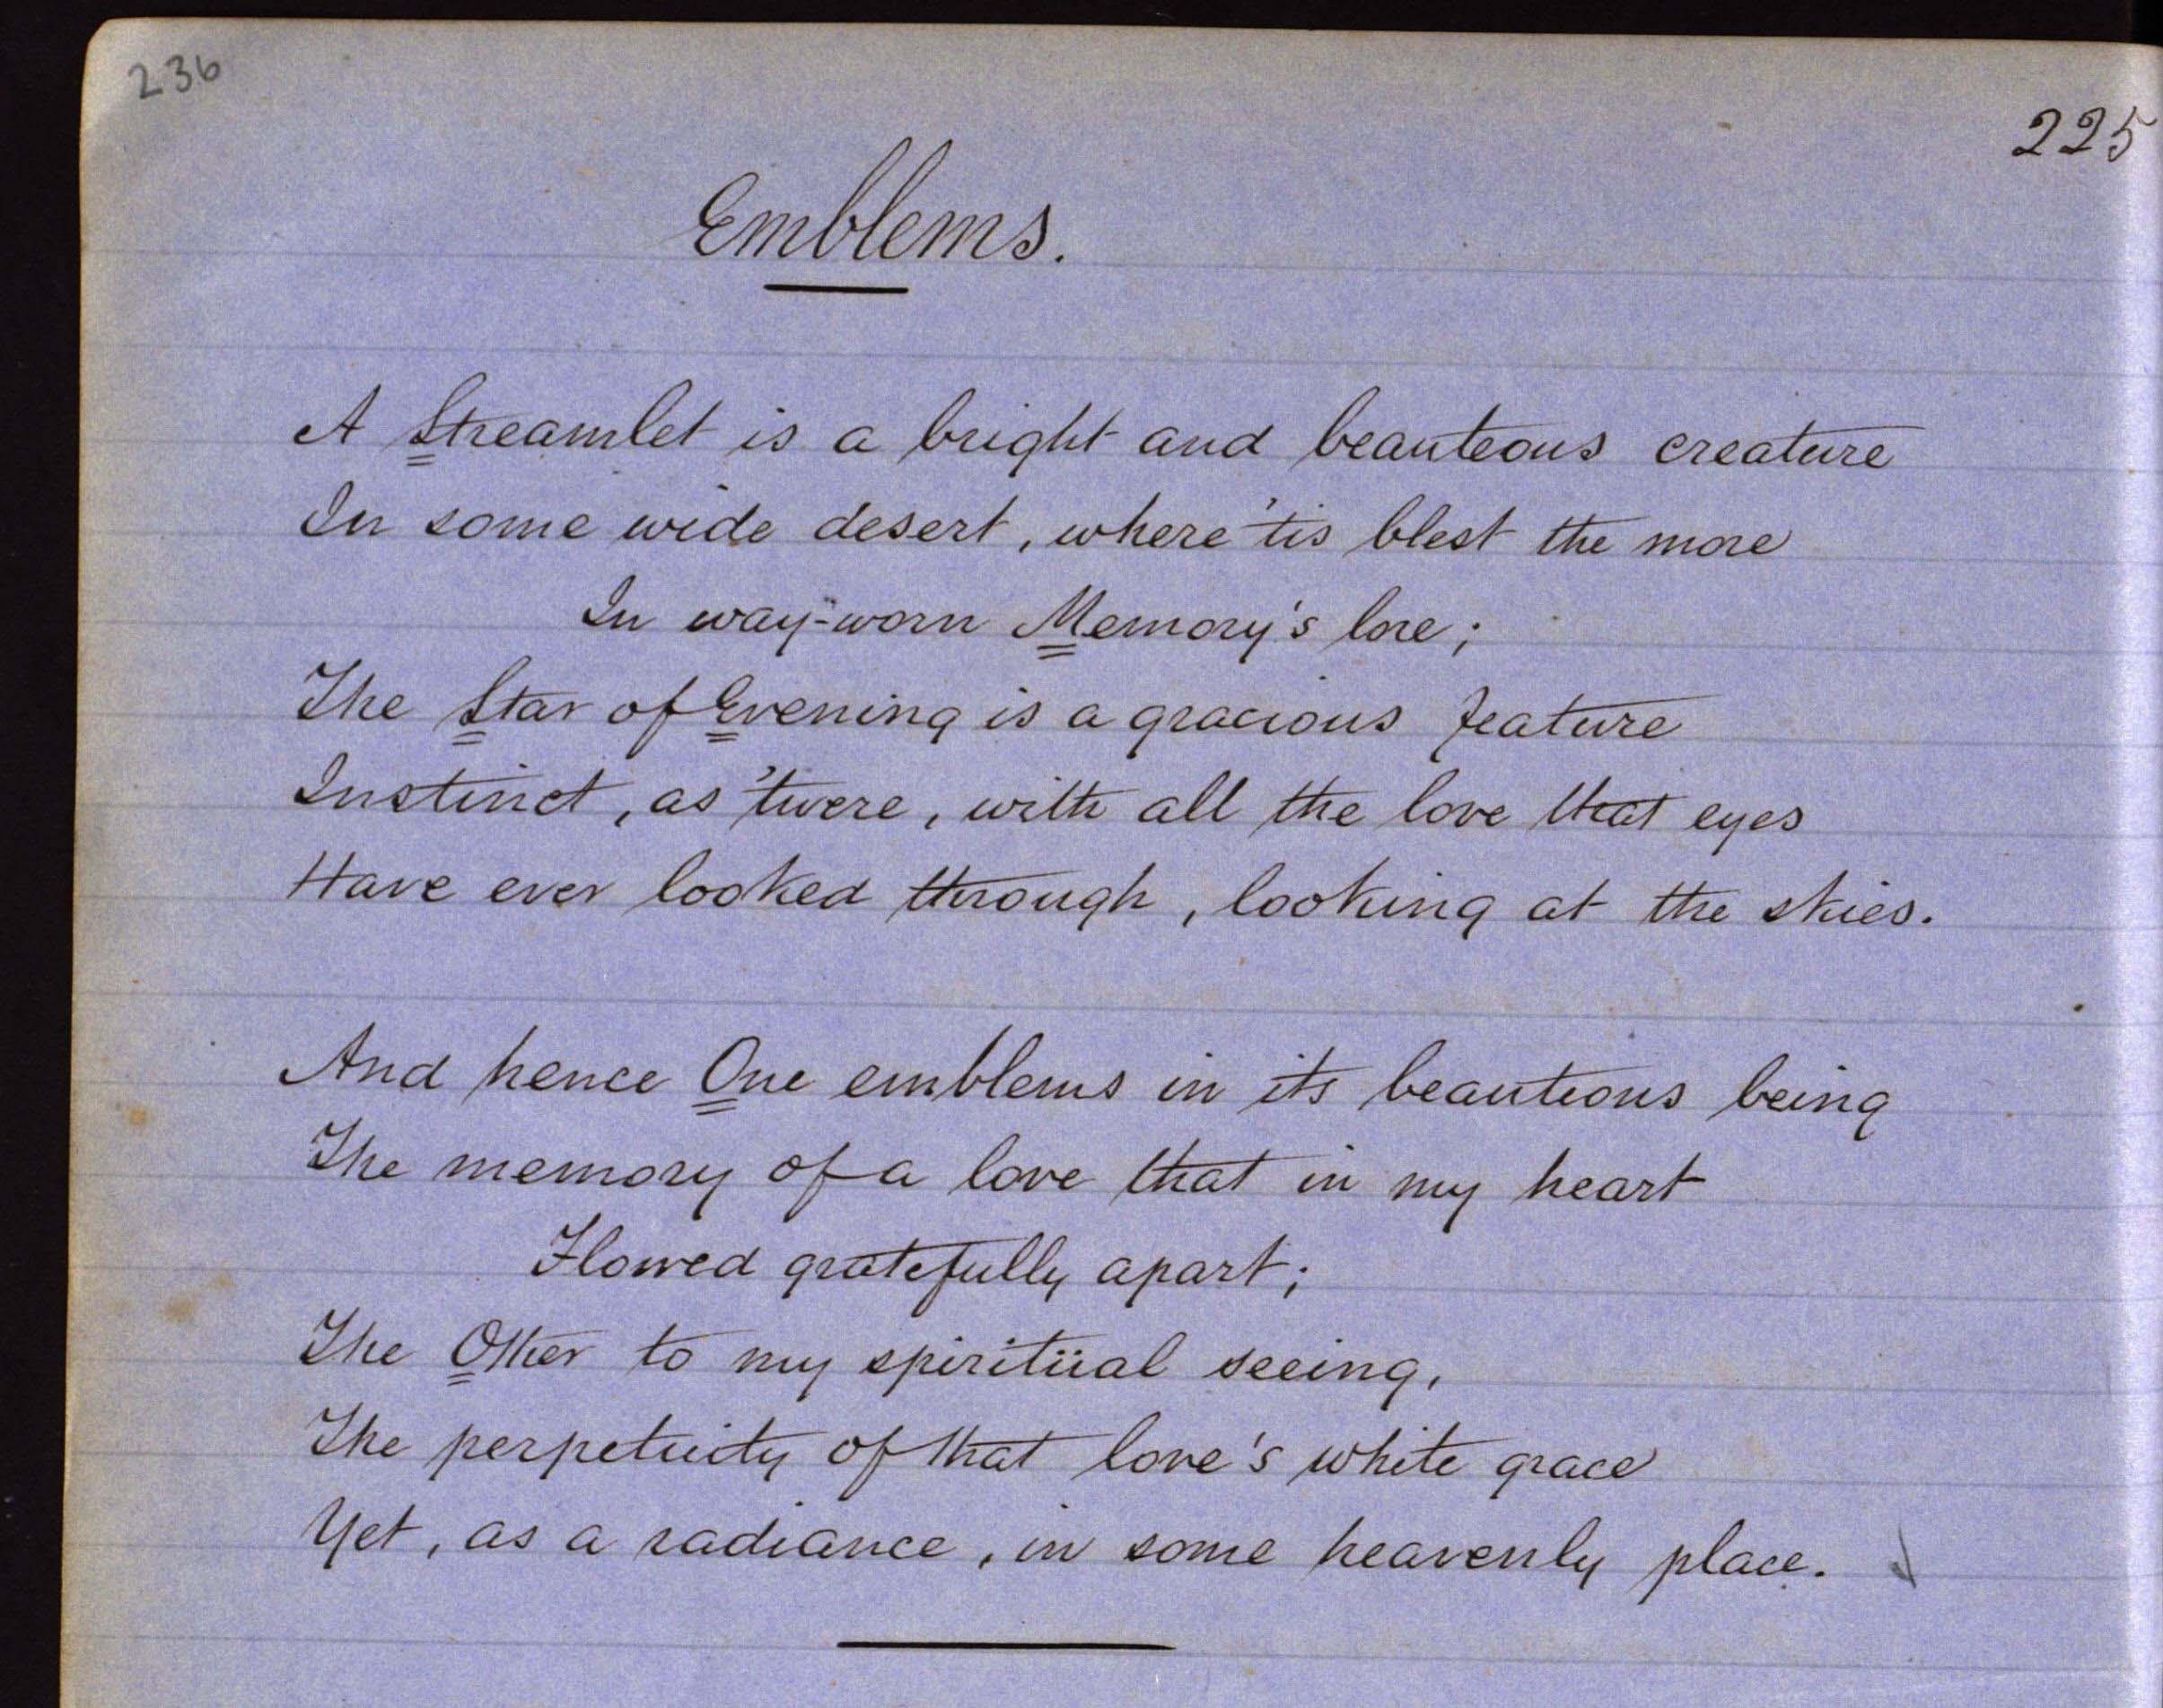 236
225
Emblems.
A Streamlet is a bright and beauteous creature
In some wide desert, where 'tis blest the more
In way-worn Memory's lore;
The Star of Evening is a gracious feature
Instinct, as 'twere, with all the love that eyes
Have ever looked through, looking at the skies.
And hence One emblems in its beauteous being
The memory of a love that in my heart
Flowed gratefully apart;
The Other to my spiritüal seeing,
The perpetuity of that love's white grace
Yet, as a radiance, in some heavenly place.